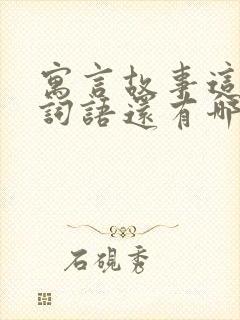 寓言故事這
詞語還有哪
石硯秀